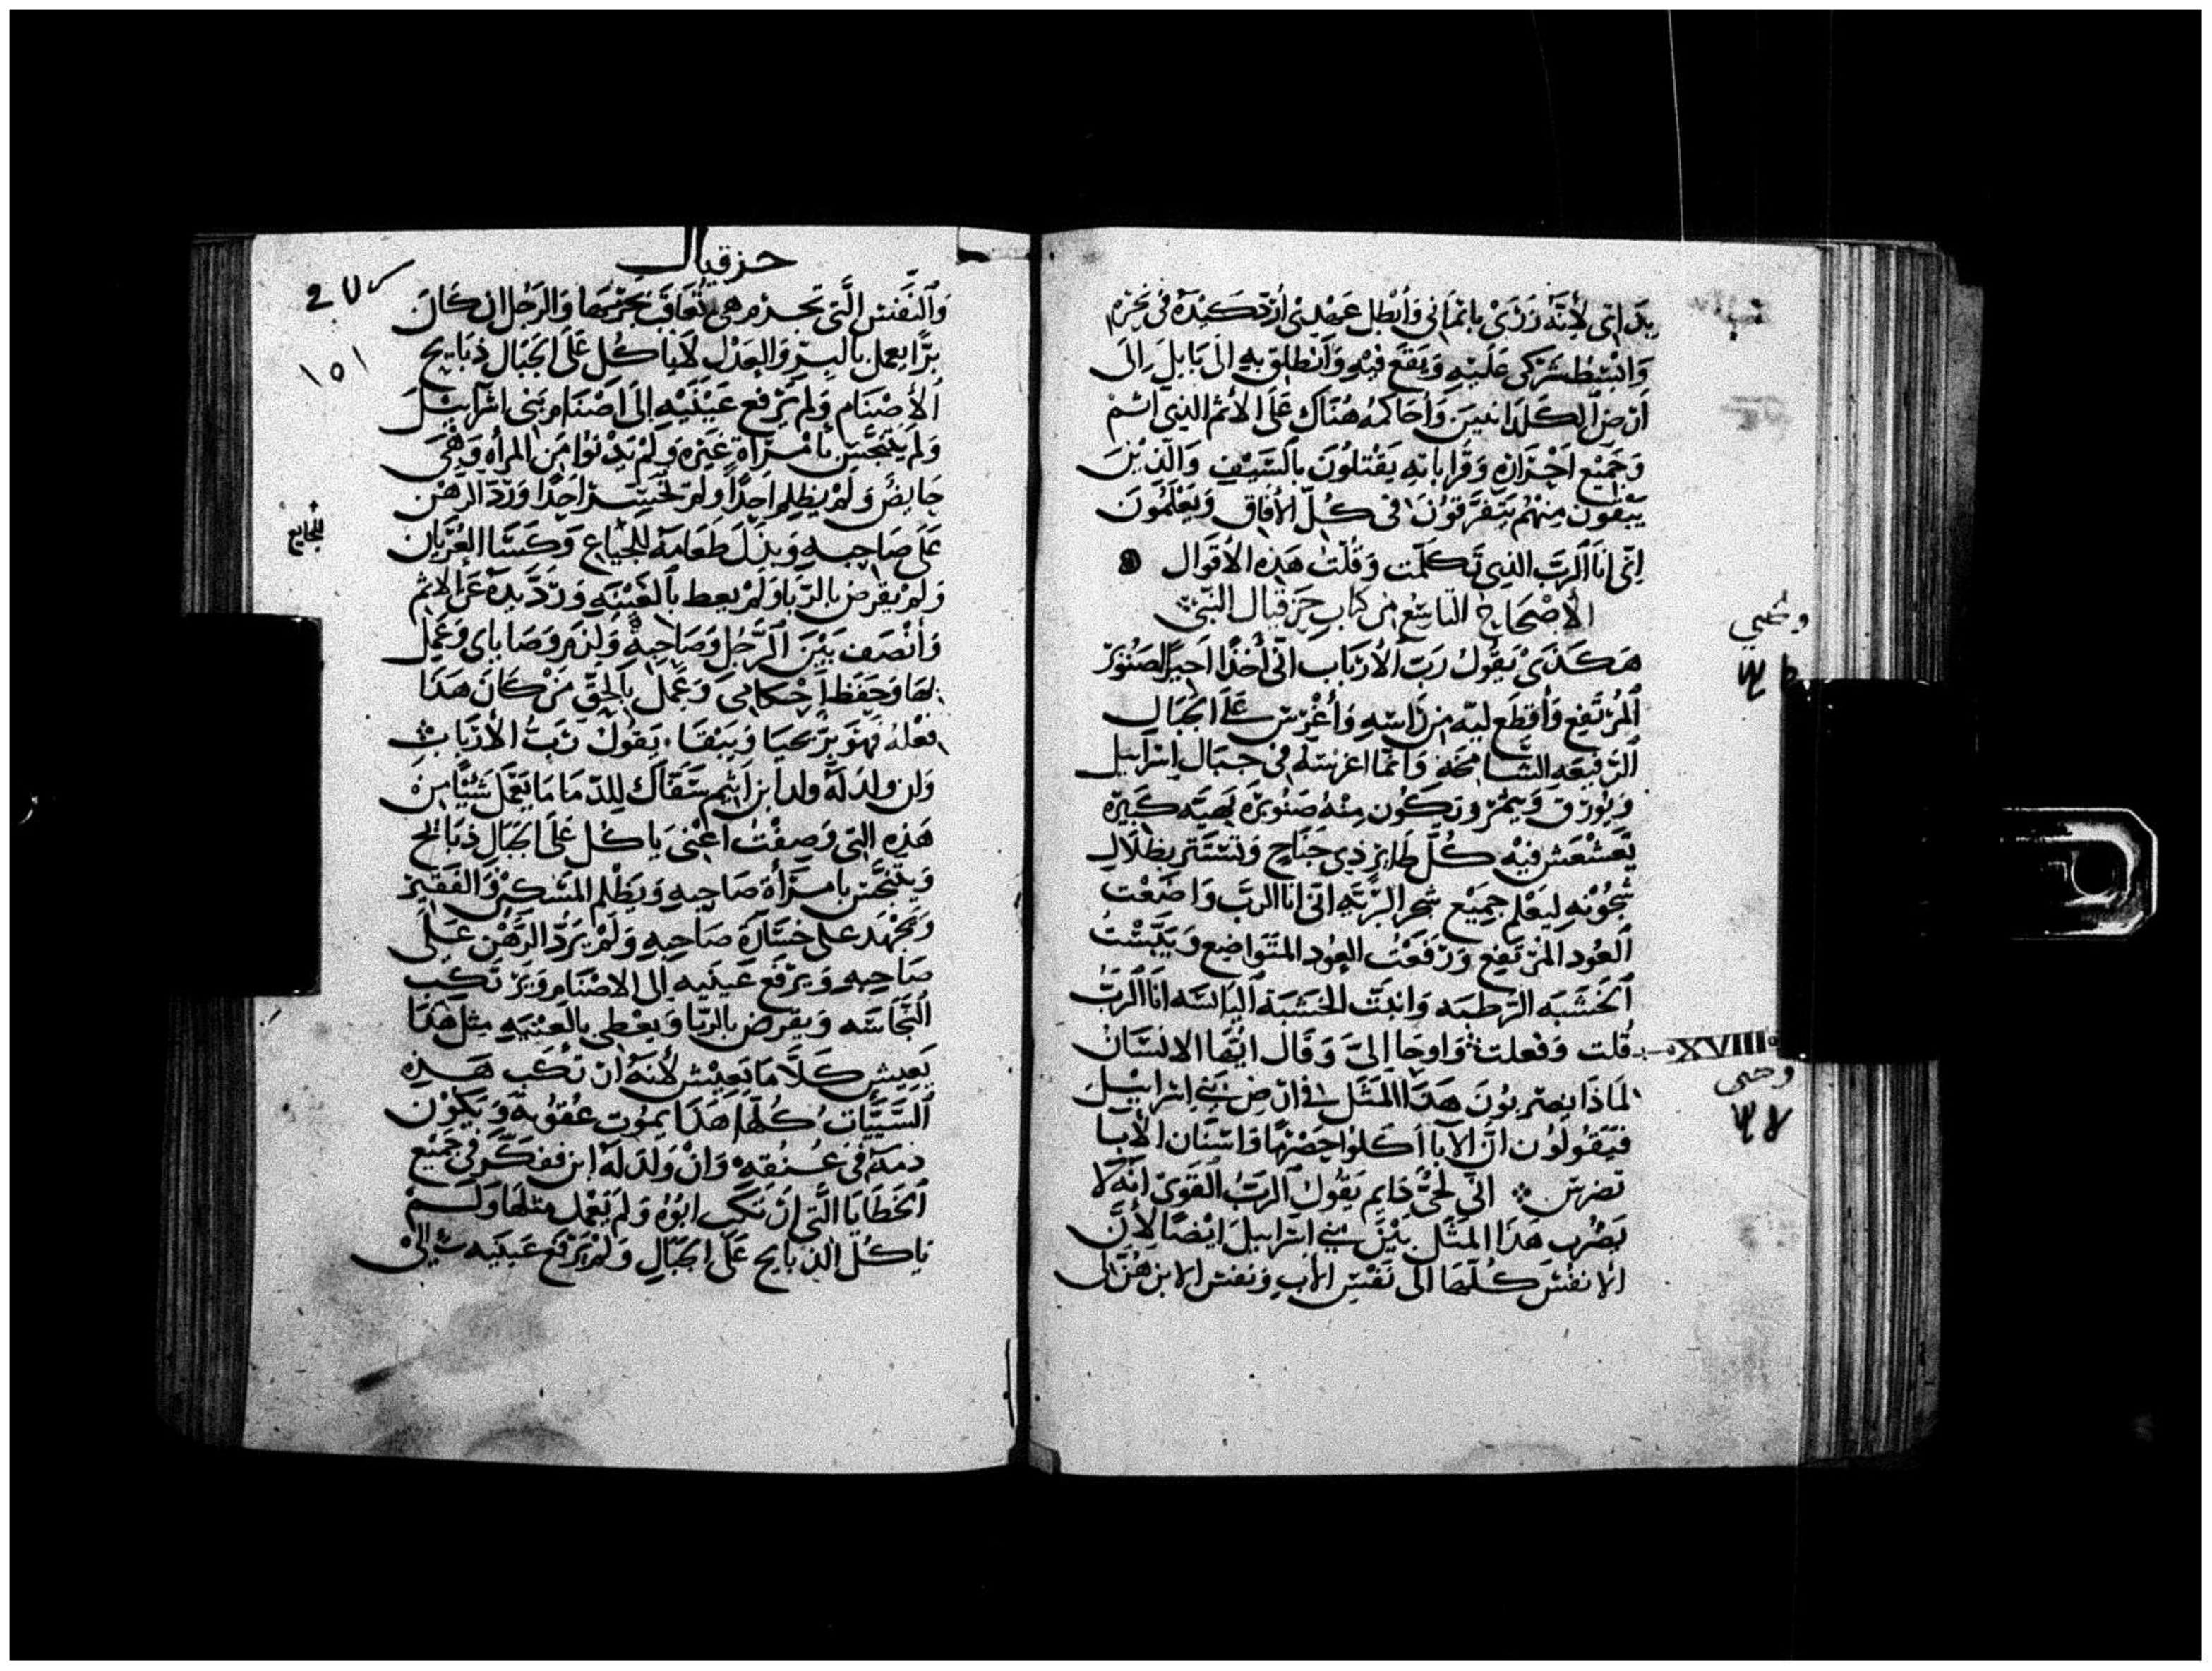 بذاتي لأنه زرى بايماني وأبطل عهدي أرد كيده في نحره
وابسط شركى عليه ويقع فيه وأنطلق به الى بابل الى
ارض الكلدانيين وأحاكمه هناك على الأثم الذي اثم
وجميع احزابه وقراباته يقتلون بالسيف والذين
يبقون منهم يتفرقون في كل الأفاق ويعلمون
اني انا الرب الذي تكلمت وقلت هذه الأقوال
الأصحاح التاسع من كتاب حزقيال النبي
هكذى يقول رب الأرباب اني أخذ احبار الصنوبر
المرتفع وأقطع لبه من راسه وأغرس على الجبال
الرفيعه الشامخة وانما اغرسه في جبال اسراييل
ويورق ويثمر وتكون منه صنوبره بهيه كبيره
تعشعش فيه كل طاير ذي جناح وتستتر بظلال
شجونه ليعلم جميع شجر البرية اني انا الرب واضعت
العود المرتفع ورفعت العود المتواضع ويبست
الخشبه الرطبه وانبت الخشبة اليابسه انا الرب
قلت وفعلت واوحا الي وقال ايها الانسان
XVIII
لماذا يضربون هذا المثل في ارض بني اسراييل
فيقولون ان الآبا أكلوا حصرمًا واسنان الأبنا
تضرس اني لحي دايم يقول الرب القوي انه لا
يضرب هذا المثل بين بني اسراييل ايضًا لأن
الانفس كلها الى نفس الأب ونفس الابن هن لي
حزقيال
١٥١
والنفس التي تجرم هي تعاقب بجرمها والرجل ان كان
برًا يعمل بالبر والعدل لا يأكل على الجبال ذبايح
الأصنام ولم يرفع عينيه إلى اصنام بني اسراييل
ولم يتنجس بامرأة غيره ولم يدنوا من المرأه وهي
حايض ولم يظلم احدًا ولم يخسر احدًا وردد الرهن
على صاحبه وبذل طعامه للجياع وكسا العريان
للجايع
ولم يقرض بالربا ولم يعط بالعينه ورد يده عن الاثم
وأنصف بين الرجل وصاحبه ولزم وصاياى وعمل
بها وحفظ احكامي وعمل بالحق من كان هذا
فعله فهو بر يحيا ويبقا يقول رب الأرباب
وان ولد له ولدا بن اثيم سفاك للدما ما يعمل شيئًا من
هذه التي وصفت اعنى ياكل على الجبال ذبايح
ويتنجس بامرأة صاحبه ويظلم المسكين والفقير
ويجهد على خسارة صاحبه ولم يرد الرهن على
صاحبه ويرفع عينيه الى الاصنام ويرتكب
النجاسه ويقرض بالربا ويعطي بالعينه مثل هذا
يعيش كلا ما يعيش لأنه ارتكب هذه
السيئات كلها هذا يموت عقوبة ويكون
دمه في عنقه وان ولد له ابن ففكر في جميع
الخطايا التي ارتكب ابوه ولم يعمل مثلها ولم
ياكل الذبايح على الجبال ولم يرفع عينيه الى